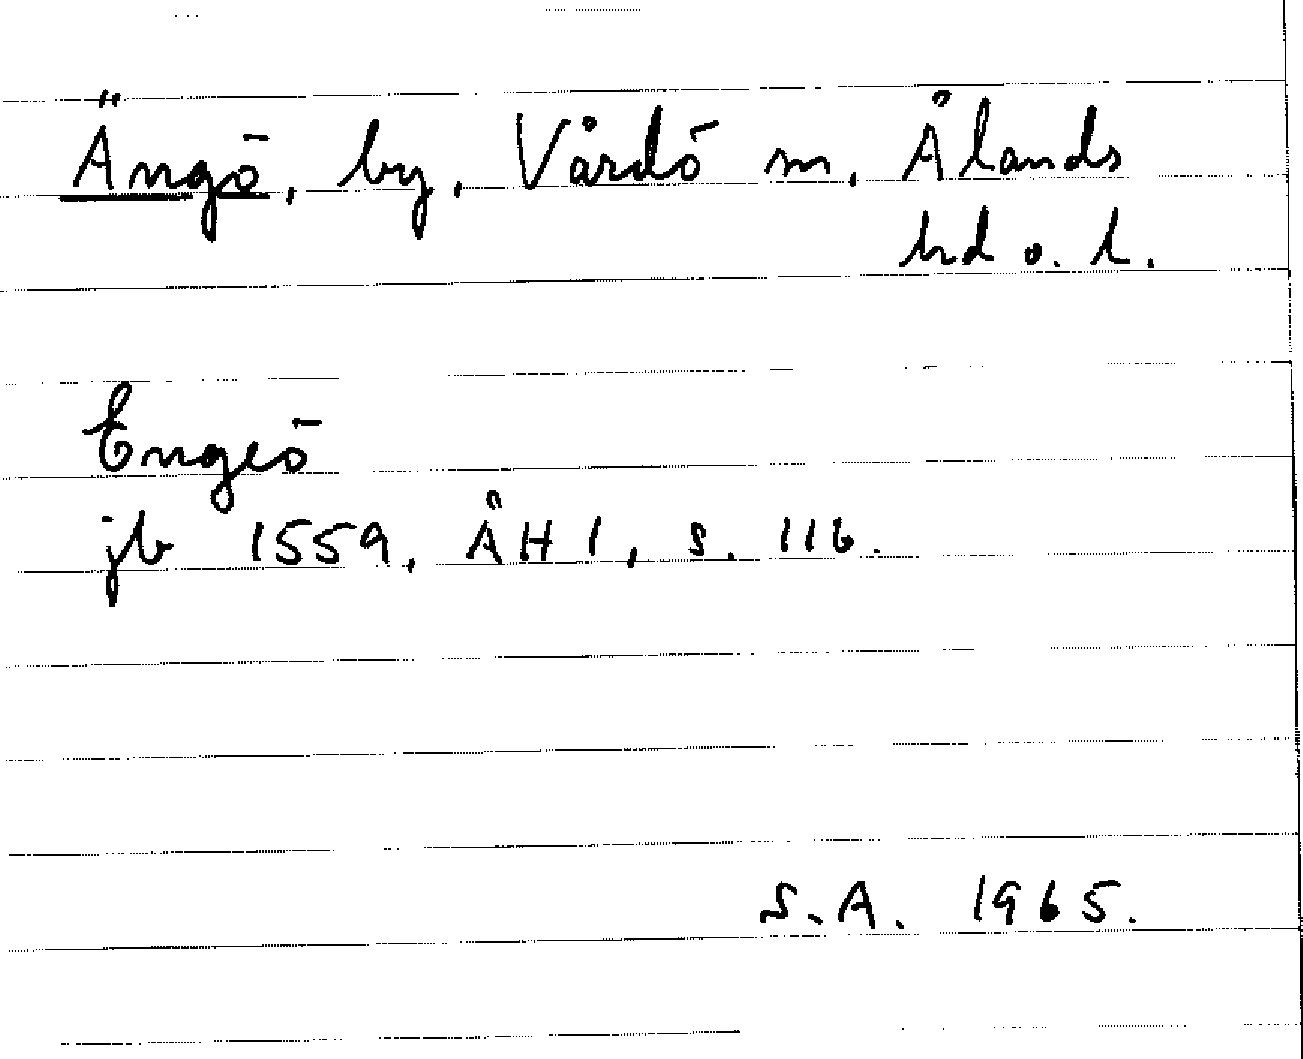 Ängö, by, Vårdö sn, Ålands
hd o. l.
Engeö
jb 1559, ÅH 1, s. 116.
S.A. 1965.